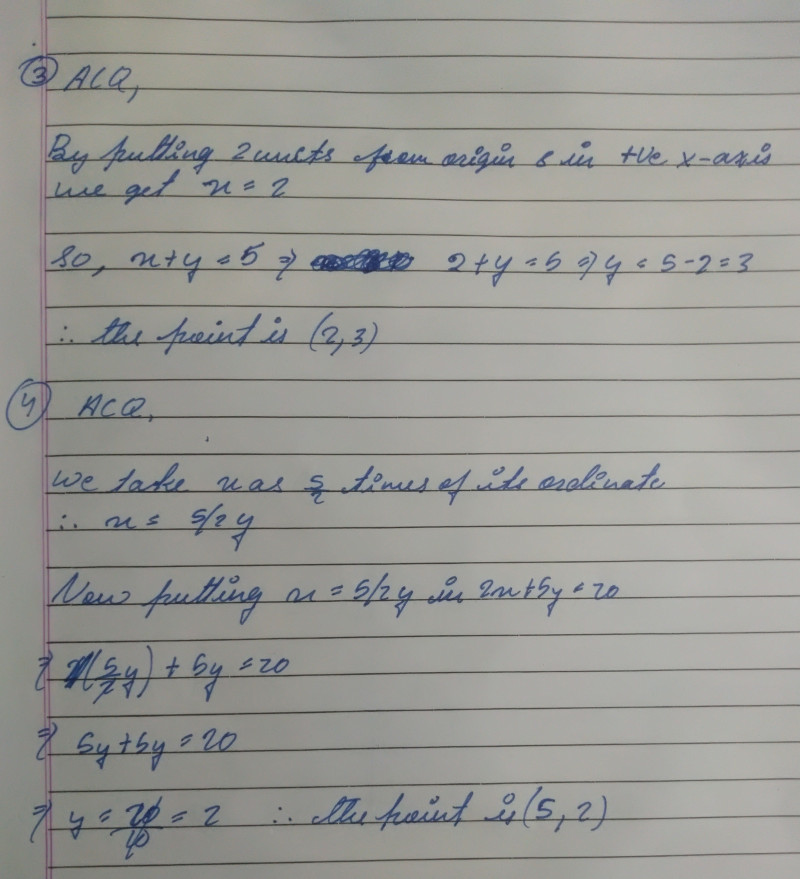 ③ ACQ,
By putting 2 units from origin & in +ve x-axis
we get x = 2
So, x+y = 5 ⇒ 2+y = 5 ⇒ y = 5-2 = 3
∴ the point is (2,3)
④ ACQ,
we take x as 5/2 times of its ordinate
∴ x = 5/2 y
Now putting x = 5/2 y in 2x+5y = 20
⇒ 2(5y/2) + 5y = 20
⇒ 5y+5y = 20
⇒ y = 20/10 = 2 ∴ the point is (5, 2)